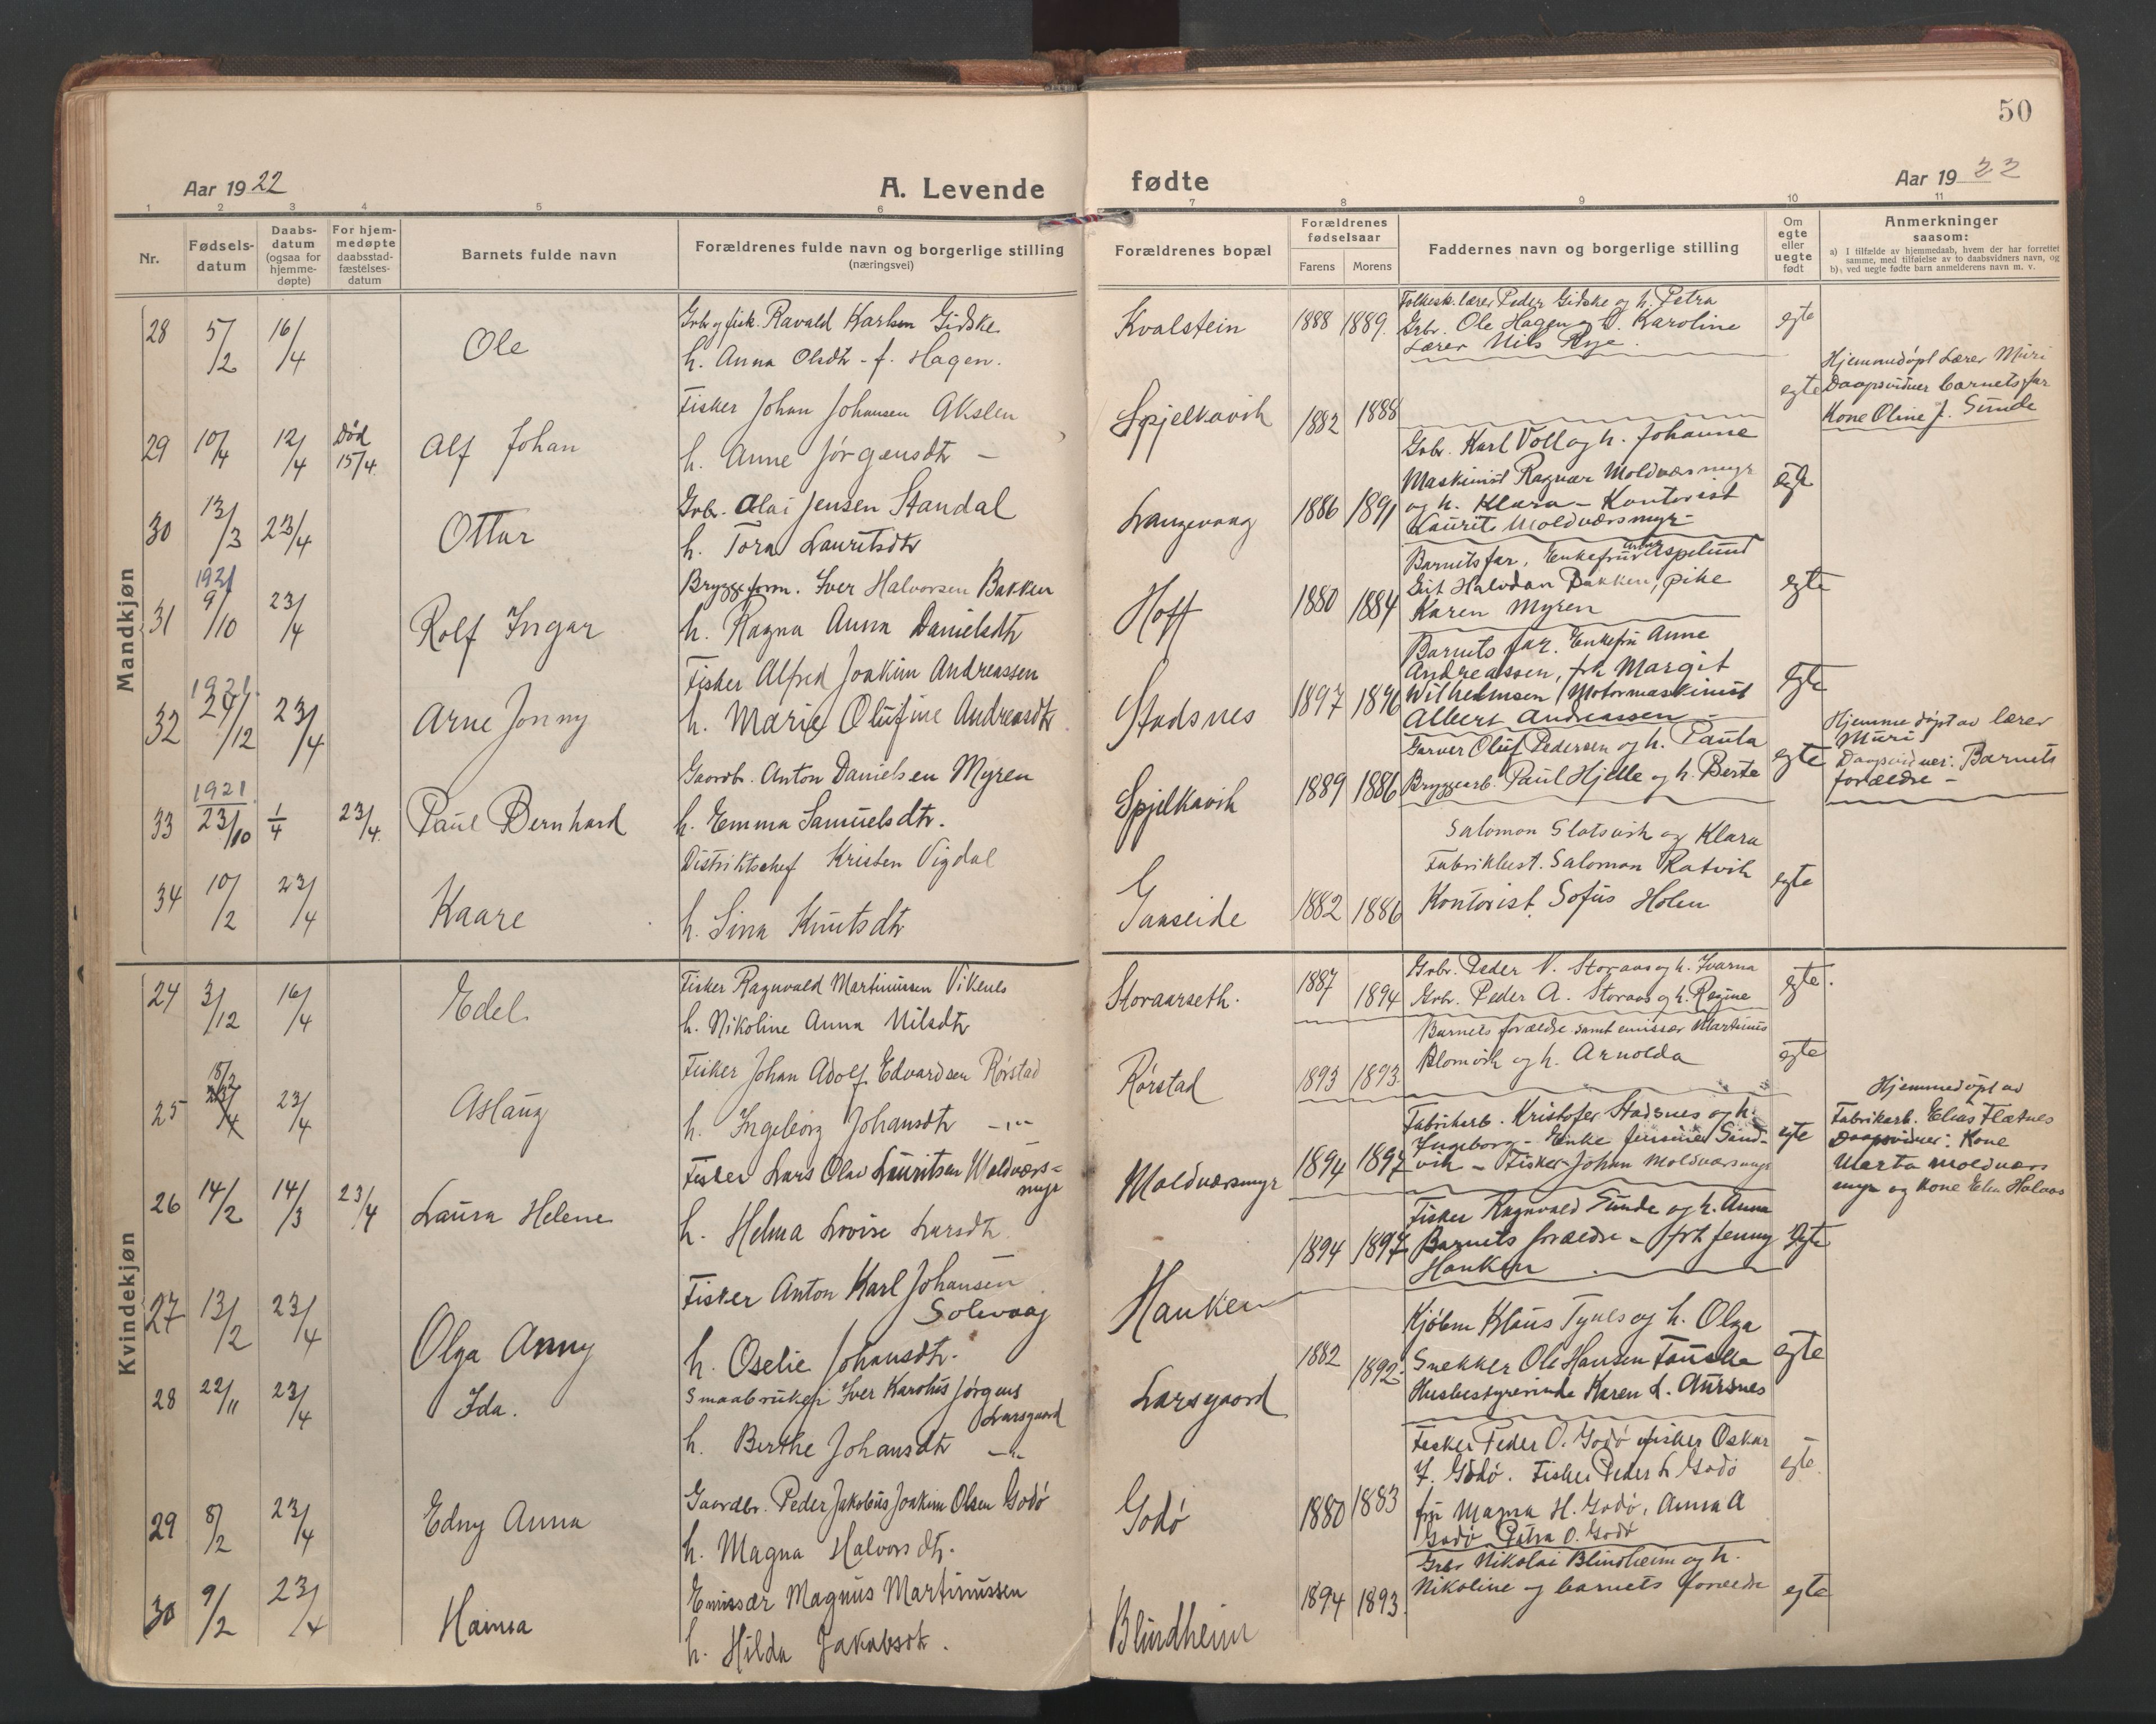 50
Aar 1922
A. Levende fødte
Aar 1922
1 2 3 4 5 6 7 8 9 10 11
Nr.
Fødsels-
datum
Daabs-
datum
(ogsaa for
hjemme-
døpte)
For hjem-
medøpte
daabsstad-
fæstelses-
datum
Barnets fulde navn
Forældrenes fulde navn og borgerlige stilling
(næringsvei)
Forældrenes bopæl
Forældrenes
fødselsaar
Farens Morens
Faddernes navn og borgerlige stilling
Om
egte
eller
uegte
født
Anmerkninger
saasom:
a) I tilfælde av hjemmedaab, hvem der har forrettet
samme, med tilføielse av to daabsvidners navn, og
b) ved uegte fødte barn anmelderens navn m. v.
Mandkjøn
28 5/2 16/4 Ole
Grbr og fisk. Ravald Karlsen Gidske
h. Anna Olsdtr - f. Hagen.
Kvalstein 1888 1889.
Folkesk. lærer Peder Gidske og h. Petra
Grbr. Ole Hagen og h. Karoline
Lærer Nils Rye.
egte
29 10/4 12/4 Død 15/4. Alf Johan
Fisker Johan Johansen Akslen
h. Anne Jørgensdtr -
Spjelkavik 1882 1888
egte
Hjemmedøpt Lærer Muri
Daapsvidner barnets far
Kone Oline J. Sunde
30 13/3 23/4 Ottar
Grbr. Olai Jensen Standal
h. Tora Lauritsdtr
Langevaag 1886 1891
Grbr. Karl Voll og h. Johanne
Maskinist Ragnar Moldværsmyr
og h. Klara - Kontorist
Laurits Moldværsmyr -
egte
31 1921 9/10 23/4 Rolf Ingar
Bryggeform. Iver Halvorsen Bakken
h. Ragna Anna Danielsdtr
Hoff 1880 1884
Barnets far, Enkefru Aspelund
Halvdan Bakken, pike
Karen Myren
egte
32 1921. 24/12 23/4 Arne Jonny
Fisker Alfred Joakim Andreassen
h. Marie Olufine Andreasdtr
Stadsnes 1897 1896
Barnets far. Enkefru Anne
Andreassen, frk Margit
Wilhelmsen Motormaskinist
Albert Andreassen -
egte
33 1921. 23/10 1/4 23/4. Paul Bernhard
Gaardbr. Anton Danielsen Myren
h. Emma Samuelsdtr.
Spjelkavik 1889 1886
Garver Oluf Pedersen og h. Paula
Bryggearb. Paul Hjelle og h. Berte
egte
Hjemmedøpt av lærer
Muri
Daapsvidner: Barnets
forældre -
34 10/2 23/4 Kaare
Distriktschef Kristen Vigdal
h. Sina Knutsdtr
Gaaseide 1882 1886
Salomon Slotsvik og Klara
Fabrikbest. Salomon Ratvik
Kontorist Sofus Holen
egte
Kvindekjøn
24 3/12 16/4 Edel
Fisker Ragnvald Martinussen Vikenes
h. Nikoline Anna Nilsdtr
Storaarseth. 1887 1894
Grbr. Peder N. Storaas og h. Ivarna
Grbr. Peder A. Storaas og h. Regine
egte.
25 18/2 23/4 Aslaug
Fisker Johan Adolf Edvardsen Rørstad
h. Ingeborg Johansdtr -"-
Rørstad 1893 1893
Barnets forældre samt emissær Martinus
Blomvik og h. Arnolda
egte
26 14/2 14/3 23/4 Laura Helene
Fisker Lars Olav Lauritsen Moldværs-
myr
h. Helma Lovise Larsdtr.
Moldværsmyr 1894 1897
Fabrikarb. Kristofer Stadsnes og h.
Ingeborg - Enke Jensine Sand-
vik - Fisker Johan Moldværsmyr
egte
Hjemmedøpt av
Fabrikarb. Elias Flatnes
Daapsvidner: Kone
Marta Moldværs
myr og Kone Elen Halaas
27 13/2 23/4 Olga Anny
Fisker Anton Karl Johansen
Solevaag
h. Oselie Johansdtr.
Hanken 1894 1897
Fisker Ragnvald Sunde og h. Anna
Barnets forældre - frk Jenny
Hanken
egte
28 22/11 23/4 Ida.
Smaabruker Iver Karolus Jørgens
Larsgaard
h. Berthe Johansdtr -"-
Larsgaard 1882 1892.
Kjøbm Klaus Tynes og h. Olga
Snekker Ole Hansen Fauske
Husbestyrerinde Karen L. Aursnes
egte
29 8/2 23/4 Edny Anna
Gaardbr. Peder Jakobus Joakim Olsen Godø
h. Magna Halvorsdtr.
Godø 1880 1883
Fisker Peder O. Godø fisker Oskar
J. Godø. Fisker Peder L Godø
fru Magna H. Godø, Anna A
Godø Petra O. Godø
egte.
30 9/2 23/4 Hanna
Emissær Magnus Martinussen
h. Hilda Jakobsdtr.
Blindheim 1894 1893.
Grbr Nikolai Blindheim og h.
Nikoline og barnets forældre
egte